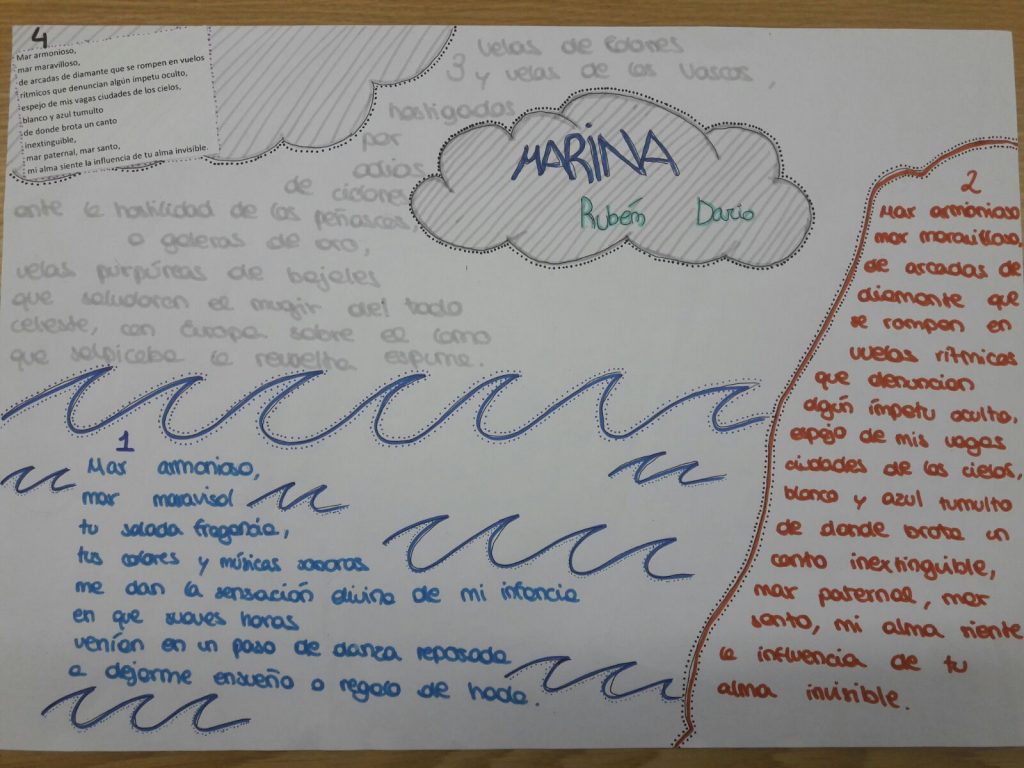 4
Mar armonioso,
mar maravilloso,
de arcadas de diamante que se rompen en vuelos
rítmicos que denuncian algún ímpetu oculto,
espejo de mis vagas ciudades de los cielos,
blanco y azul tumulto
de donde brota un canto
inextinguible,
mar paternal, mar santo,
mi alma siente la influencia de tu alma invisible.
MARINA
Rubém Dario
3 Velas de Colores
y velas de los Vascos,
hostigadas
por
odios
de ciclones
ante la hostilidad de los peñascos;
o galeras de oro,
velas purpúreas de bajeles
que saludaron el mugir del todo
celeste, con Europa sobre el lomo
que salpicaba la revuelta espuma.
1
Mar armonioso,
mar maravisol
tu salada fragancia,
tus colores y músicas sonoras
me dan la sensación divina de mi infancia
en que suaves horas
venían en un paso de danza reposada
a dejarme ensueño o regalo de hada.
2
Mar armonioso
mar maravilloso,
de arcadas de
diamante que
se rompen en
vuelas rítmicas
que denuncian
algún ímpetu oculto,
espejo de mis vagas
ciudades de los cielos,
blanco y azul tumulto
de donde brota un
canto inextinguible,
mar paternal, mar
santo, mi alma siente
la influencia de tu
alma invisible.